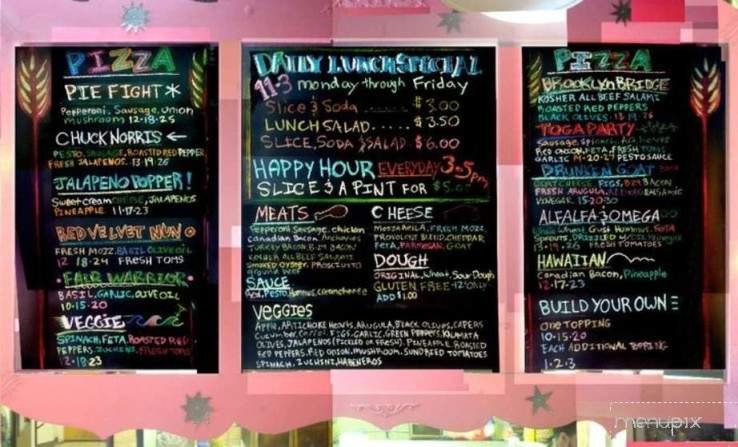 PIZZA
PIE FIGHT
Pepperoni, Sausage, Onion
mushroom 12-18-25
CHUCK NORRIS
PESTO, SAUSAGE, ROASTED RED PEPPER
FRESH JALAPENOS. 13-19-26
JALAPENO POPPER!
Sweet cream CHEESE, JALAPENOS
PINEAPPLE 11-17-23
RED VELVET NUN
FRESH MOZZ. BASIL OLIVE OIL
12 18-24 FRESH TOMS
FAIR WARRIOR
BASIL, GARLIC, OLIVE OIL
10-15-20
VEGGIE
SPINACH, FETA, ROASTED RED
PEPPERS, ZUCHINI, FRESH TOMS
12-18-23
DAILY LUNCH SPECIAL
11-3 monday through Friday
Slice & Soda $3.00
LUNCH SALAD..... $3.50
SLICE, SODA & SALAD $6.00
HAPPY HOUR EVERYDAY 3-5pm
SLICE & A PINT FOR
MEATS
Pepperoni, Sausage, chicken
Canadian Bacon, Anchovies
TURKEY BACON
KOSHER ALL BEEF SALAMI
Smoked Oyster, PROSCIUTTO
ground beef
SAUCE
Red, Pesto, Hummus, Creamcheese
CHEESE
MOZZARELLA, FRESH MOZZ
PROVOLONE BLEND, CHEDDAR
FETA, PARMESAN, GOAT
DOUGH
ORIGINAL, Wheat, Sour Dough
GLUTEN FREE 12" ONLY
ADD $1.00
VEGGIES
APPLE, ARTICHOKE HEARTS, ARUGULA, BLACK OLIVES, CAPERS
FIGS, GARLIC, GREEN PEPPERS, KALAMATA
OLIVES, JALAPENOS (PICKLED OR FRESH), PINEAPPLE, ROASTED
RED PEPPERS, RED ONION, MUSHROOM, SUNDRIED TOMATOES
SPINACH, ZUCHINI, HABENEROS
PIZZA
BROOKLYN BRIDGE
KOSHER ALL BEEF SALAMI
ROASTED RED PEPPERS
BLACK OLIVES 13-19-26
TOGA PARTY
Sausage, Spinach,
Red onion, FETA, FRESH TOMS
GARLIC 14-20-27 PESTO SAUCE
DRUNKEN GOAT
GOAT CHEESE FIGS, BACON
FRESH ARUGULA,
VINEGAR 15-20-30
ALFALFA & OMEGA
Wheat Crust Hummus, FETA
Sprouts, DRIZZLED
FRESH TOMATOES
HAWAIIAN
Canadian Bacon, Pineapple
12-17-23
BUILD YOUR OWN
ONE TOPPING
10-15-20
EACH ADDITIONAL TOPPING
1-2-3
menupix